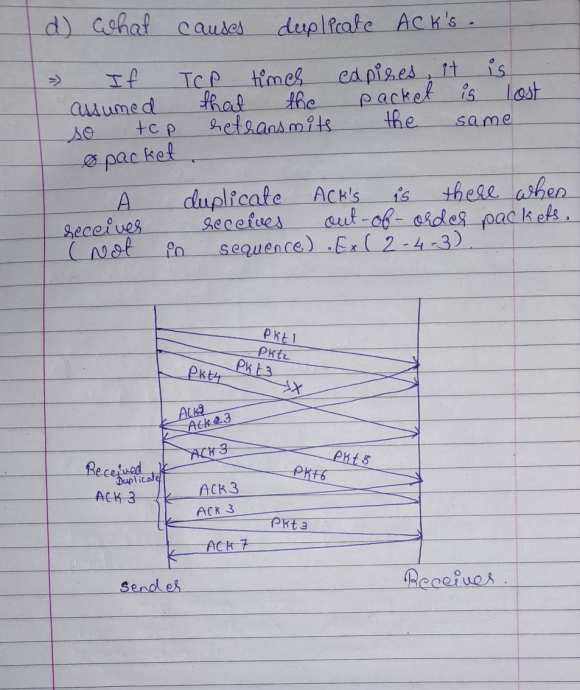 d) What causes duplicate ACK's.
⇒ If TCP timer expires, it is
assumed that the packet is lost
so tcp retransmits the same
packet.
A duplicate ACK's is there when
receiver receives out-of-order packets.
(Not in sequence). Ex (2-4-3)
Pkt1
Pkt2
Pkt3
Pkt4
ACK2
ACK 3
ACK 3
Pkt5
Received
Duplicate
ACK 3
Pkt6
ACK 3
ACK 3
Pkt3
ACK 7
Sender
Receiver.